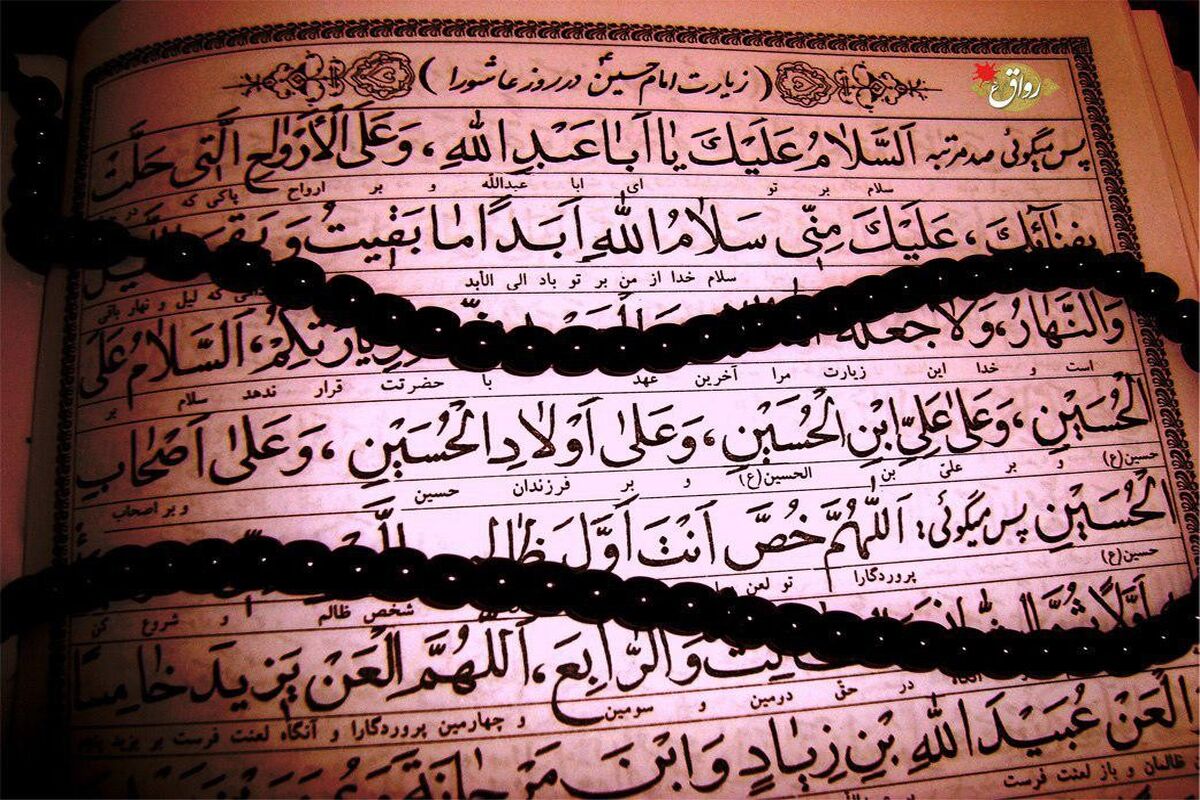 رواق
( زیارت امام حسین ع در روز عاشورا )
پس میگوئی صد مرتبه اَلسَّلامُ عَلَيْكَ يا اَبا عَبْدِ اللهِ ، وَعَلَى الْأَرْواحِ الَّتى حَلَّتْ
سلام بر تو ای ابا عبدالله و بر ارواح پاکی که در
بِفِنائِكَ ، عَلَيْكَ مِنّى سَلامُ اللهِ اَبَداً ما بَقيتُ وَ بَقِىَ
سلام خدا از من بر تو باد الی الأبد که لیل و نهار باقی
وَالنَّهارُ، وَلا جَعَلَهُ لِزِيارَتِكُمْ، اَلسَّلامُ عَلَى
است و خدا این زیارت مرا آخرین عهد با حضرتت قرار ندهد سلام بر
الْحُسَيْنِ ، وَعَلى عَلِىِّ ابْنِ الْحُسَيْنِ ، وَعَلى اَوْلادِ الْحُسَيْنِ ، وَعَلى اَصْحابِ
حسین(ع) و بر علیّ بن الحسین(ع) و بر فرزندان حسین و بر اصحاب
الْحُسَيْنِ پس میگوئی : اَللّهُمَّ خُصَّ اَنْتَ اَوَّلَ
حسین(ع) پروردگارا تو لعن
اَوَّلاً ثُمَّ
شخص ظالم و شروع کن
وَالرّابِعَ ، اَللّهُمَّ الْعَنْ يَزيدَ خامِساً
در حقّ دومین و سومین و چهارمین پروردگارا و آنگاه لعنت فرست بر یزید پنجم
الْعَنْ عُبَيْدَ اللهِ بْنِ زِيادٍ وَ ابْنَ مَرْجانَةَ
ظالمان و باز لعنت فرست